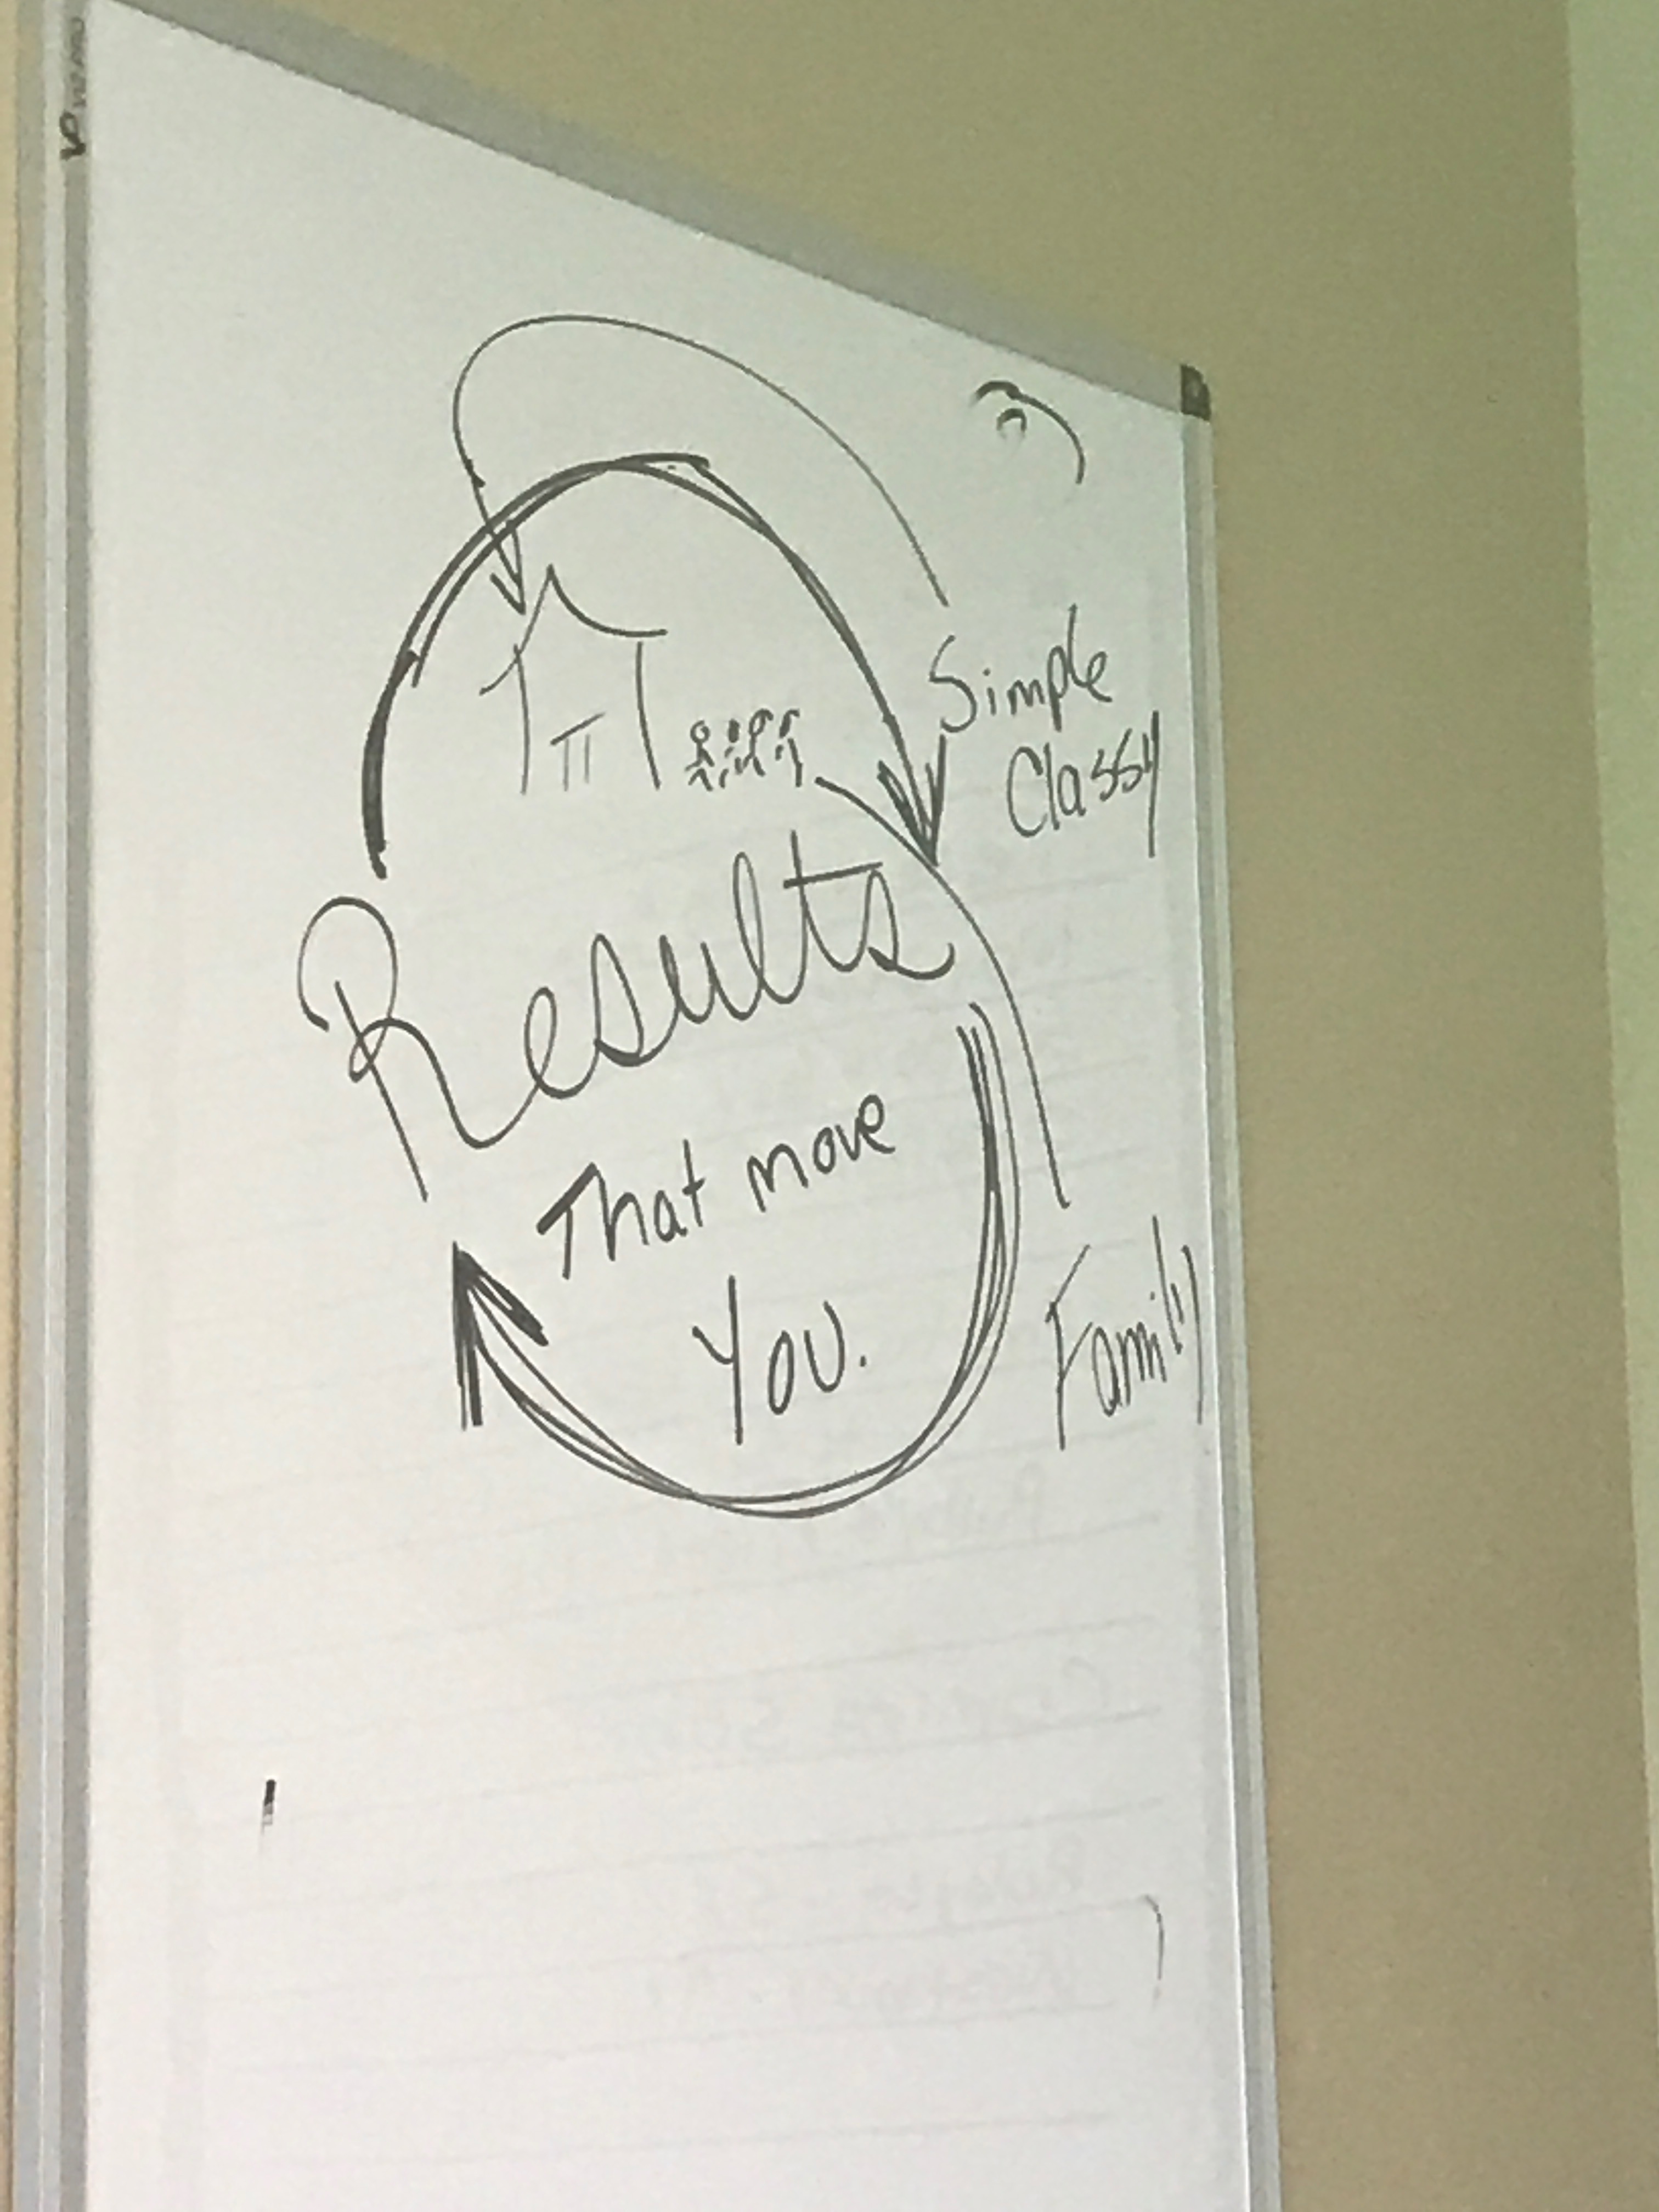 Simple
Classy
Results
That move
You.
Family